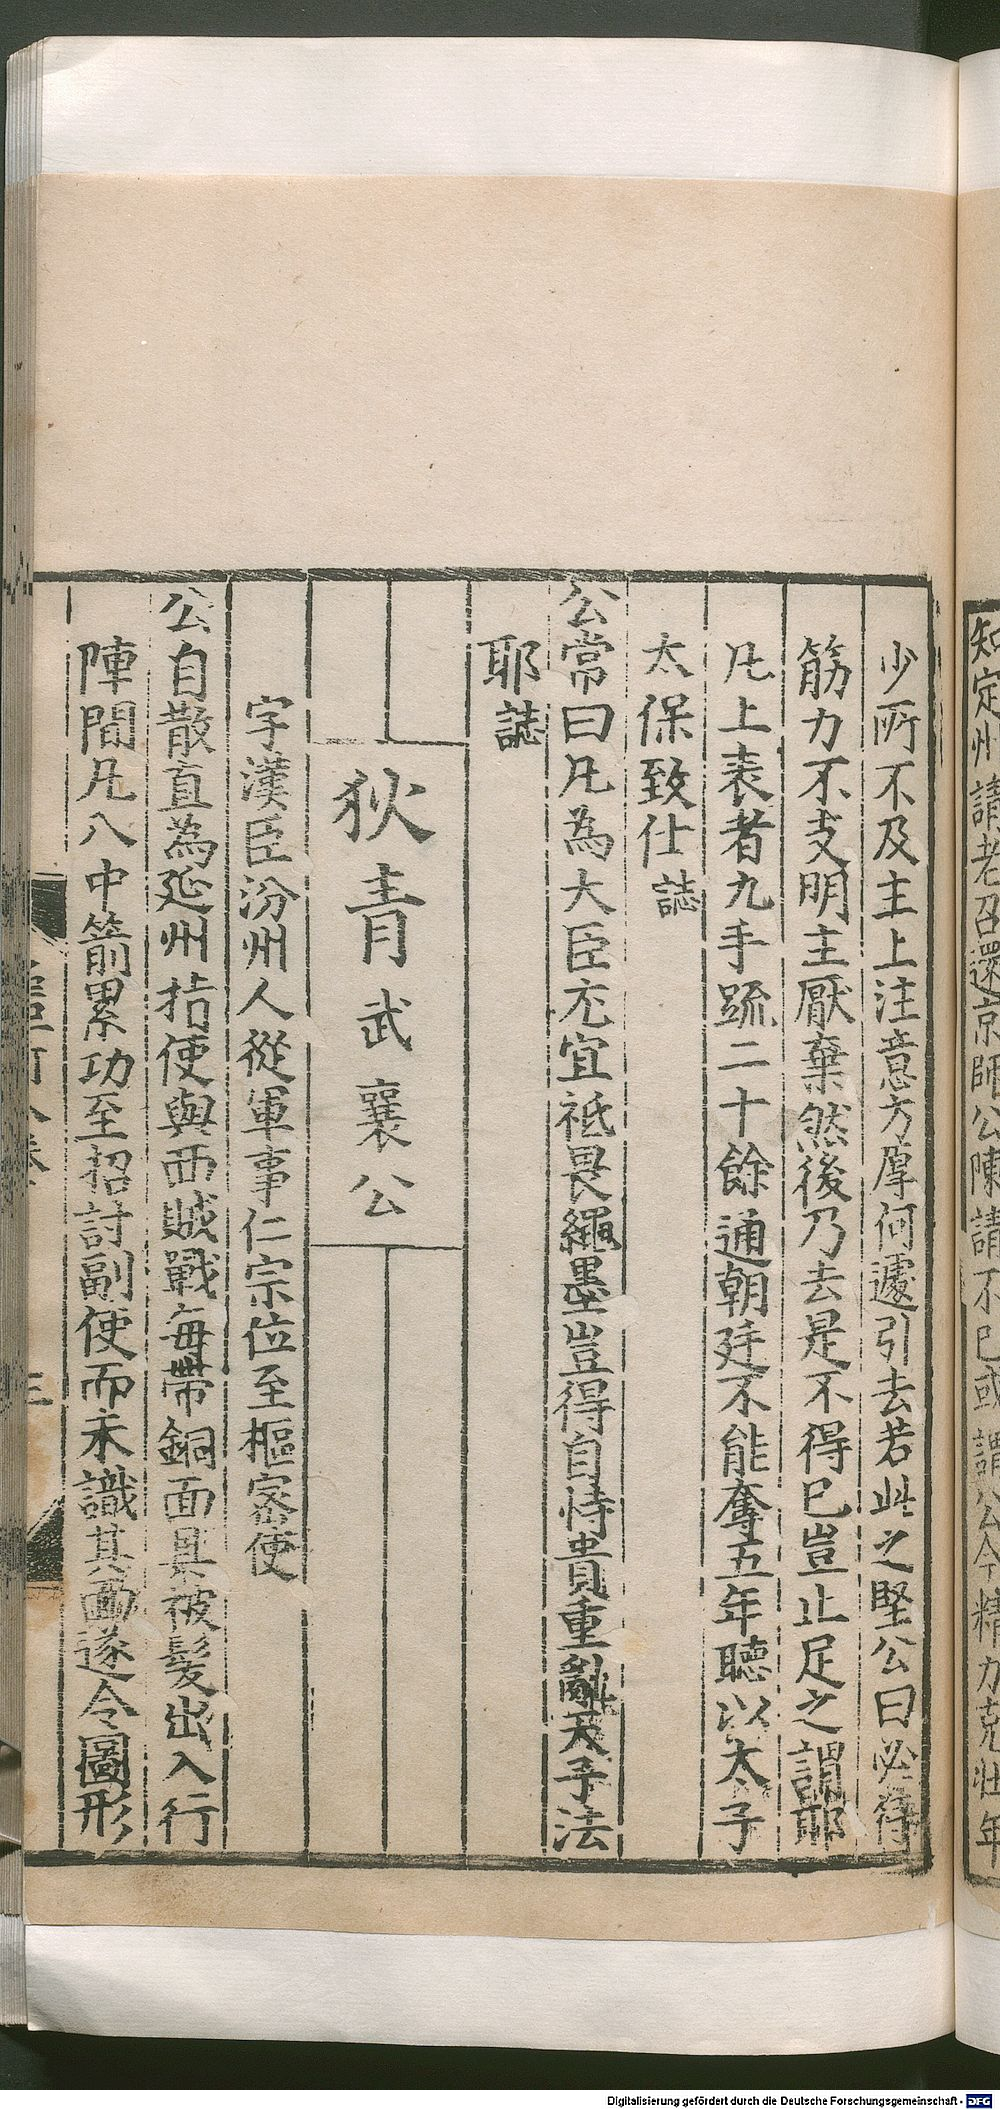 知定州請老召還京師公陳請不已或謂公今精力克壯年
少所不及主上注意方厚何遽引去若此之堅公曰必待
筋力不支明主厭棄然後乃去是不得已豈止足之謂耶
凡上表者九手疏二十餘通朝廷不能奪五年聽以太子
太保致仕誌
公常曰凡為大臣尤宜祗畏繩墨豈得自恃貴重亂天子法
耶誌
狄青武襄公
字漢臣汾州人從軍事仁宗位至樞密使
公自散直為延州指使與西賊戰每帶銅面具被髮出入行
陣間凡八中箭累功至招討副使而未識其面遂令圖形
三
Digitalisierung gefördert durch die Deutsche Forschungsgemeinschaft - DFG